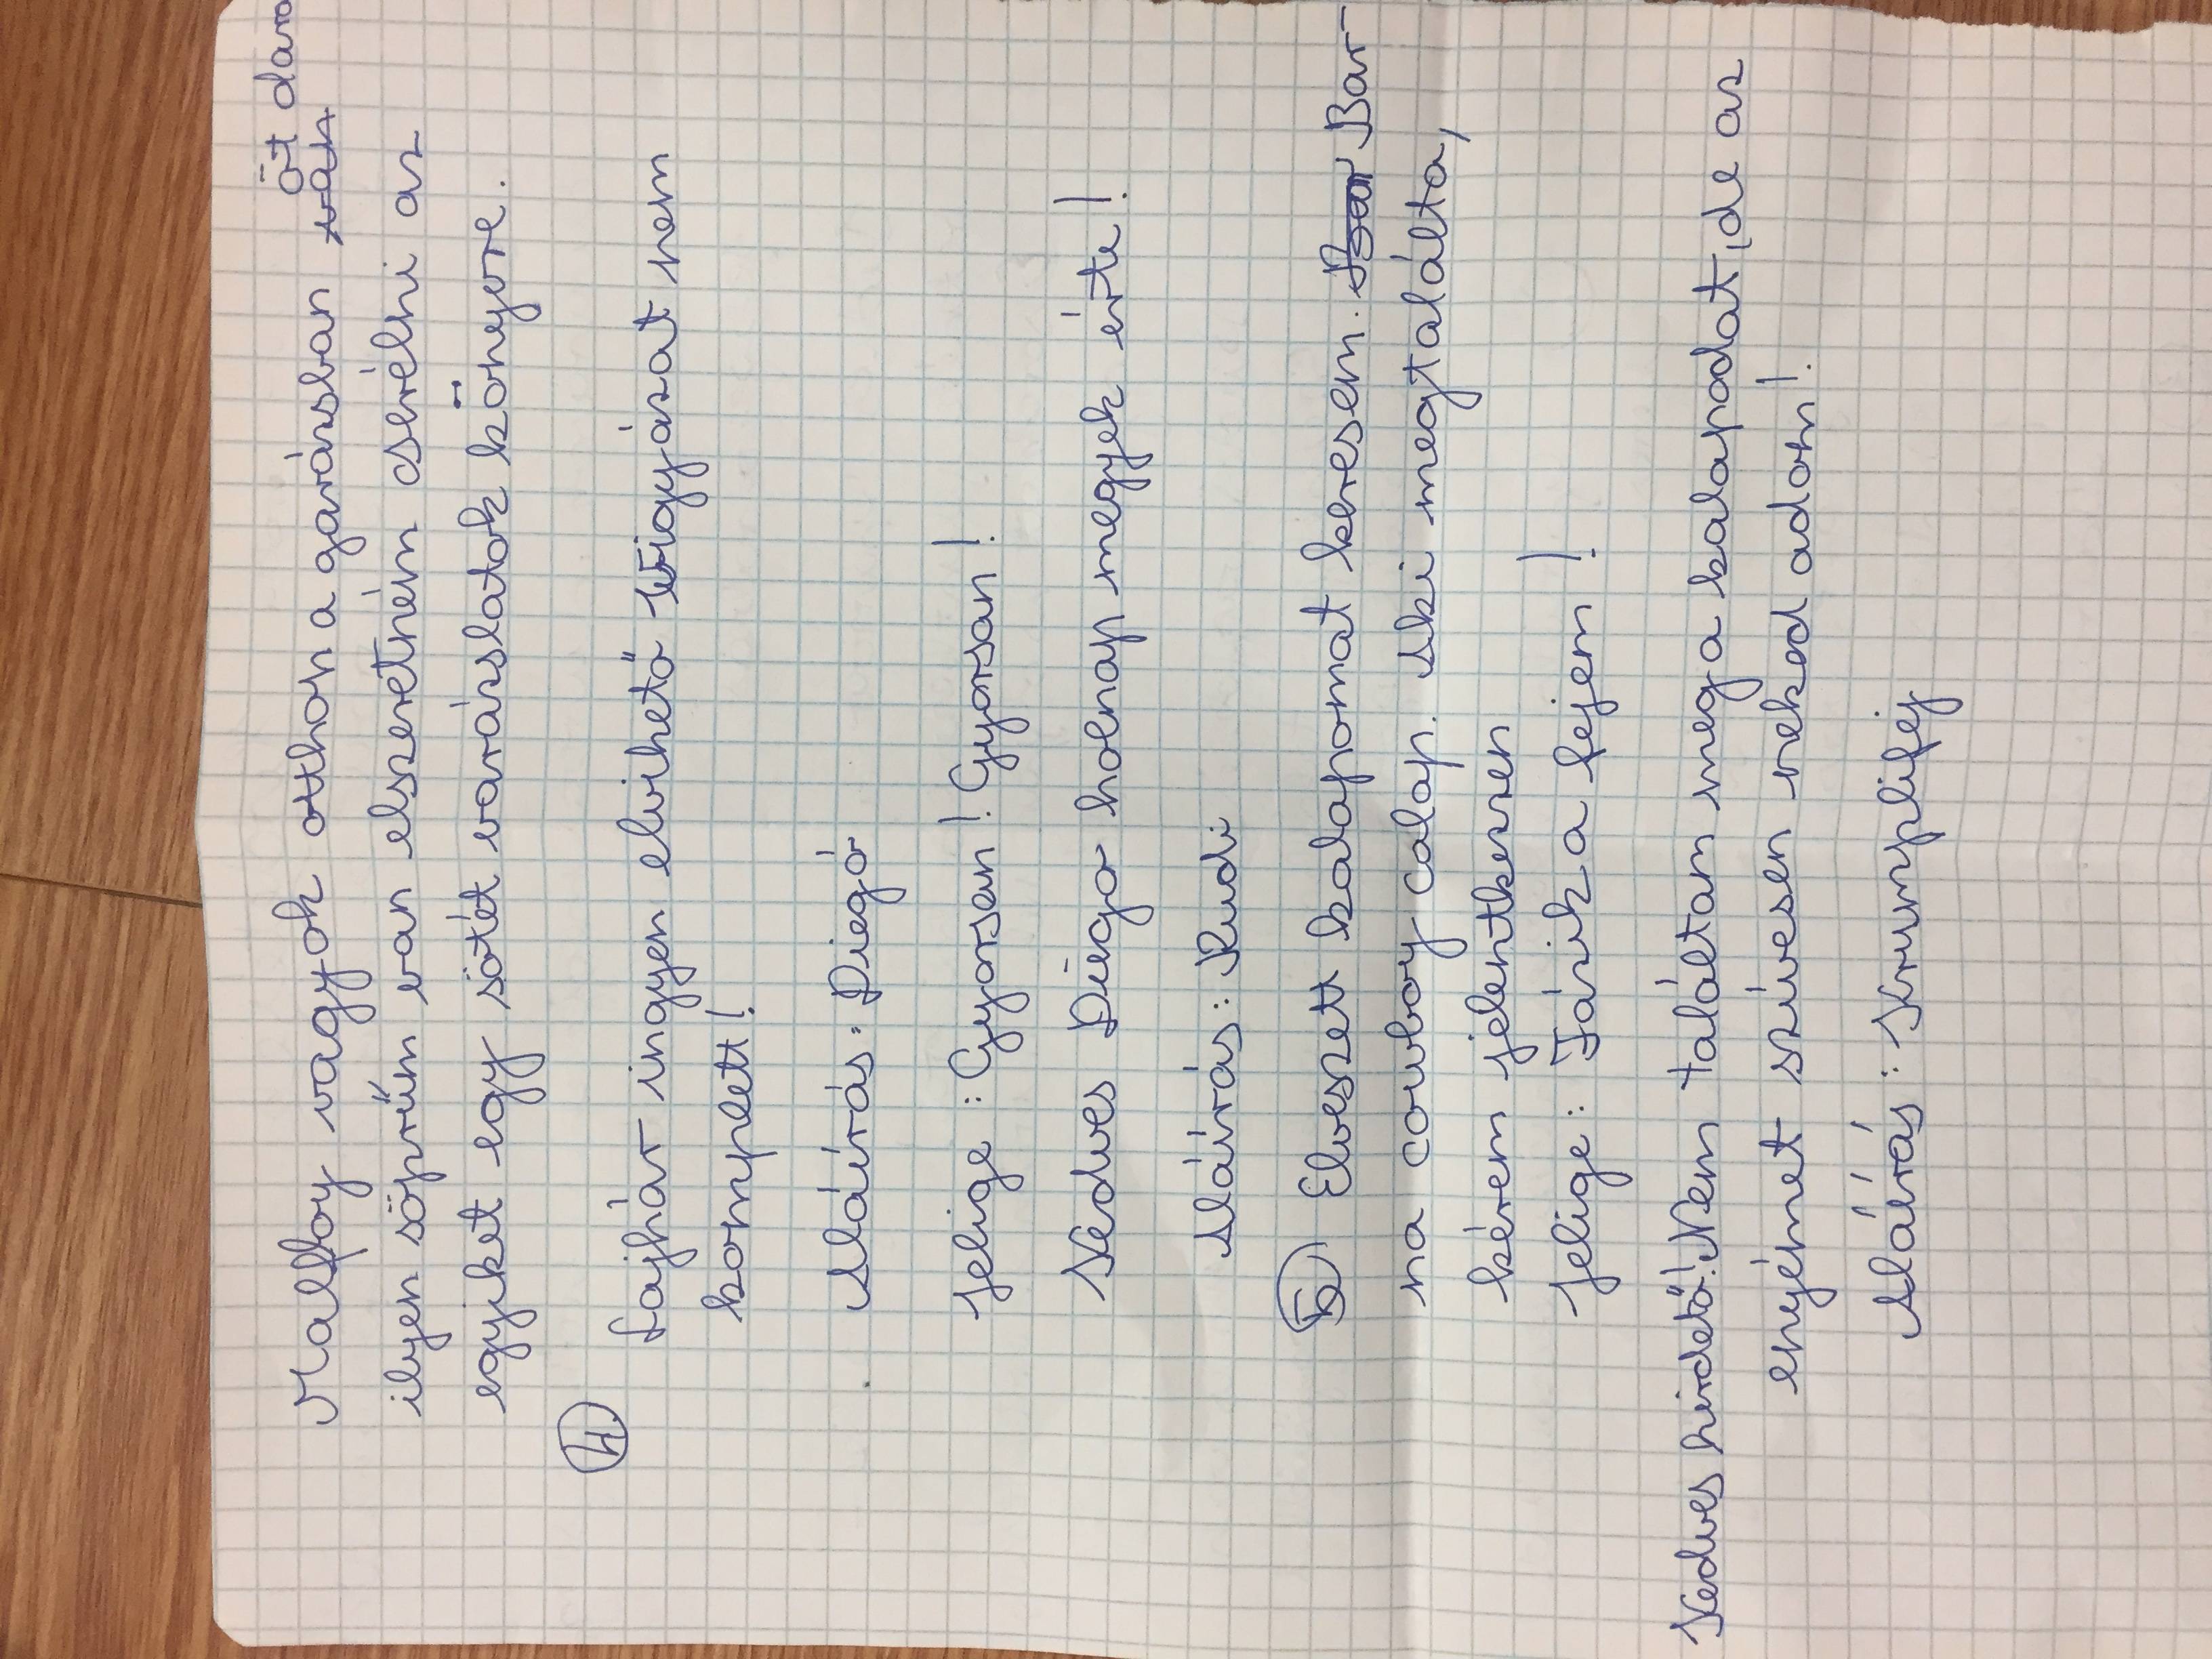 Malfoy vagyok otthon a garázsban öt dara
ilyen söprűm van elszeretném cserélni az
egyiket egy sötét varázslatok könyvre.
4.
Lajhár ingyen elvihető vigyázat nem
komplett!
Aláírás: Diegó
Jelige: Gyorsan! Gyorsan!
Kedves Diego holnap megyek érte!
Aláírás: Rudi
5. Elveszett kalapomat keresem. Bar-
na cowboy calap. Aki megtalálta,
kérem jelentkezzen
Jelige: Fázik a fejem!
Kedves hirdető! Nem találtam meg a kalapodat, de az
enyémet szívesen neked adom!
Aláírás: Krumplifej